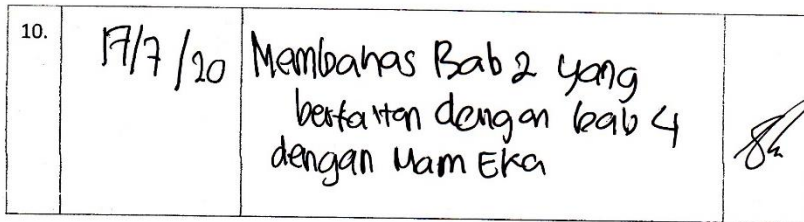 10.
17/7/20
Membahas Bab 2 yang
berkaitan dengan bab 4
dengan Mam Eka